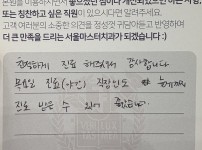 본원을 이용하시면서 좋았던 점이나 개선되었으면 하는 사항
또는 칭찬하고 싶은 직원이 있으시다면 알려주세요.
고객 여러분의 소중한 의견을 정성껏 귀담아듣고 반영하며
더 큰 만족을 드리는 서울마스터치과가 되겠습니다 :)
친절하게 진료 해주셔서 감사합니다
목요일 진료(야간) 직장인도
진료 받을 수 있어 좋습니다.